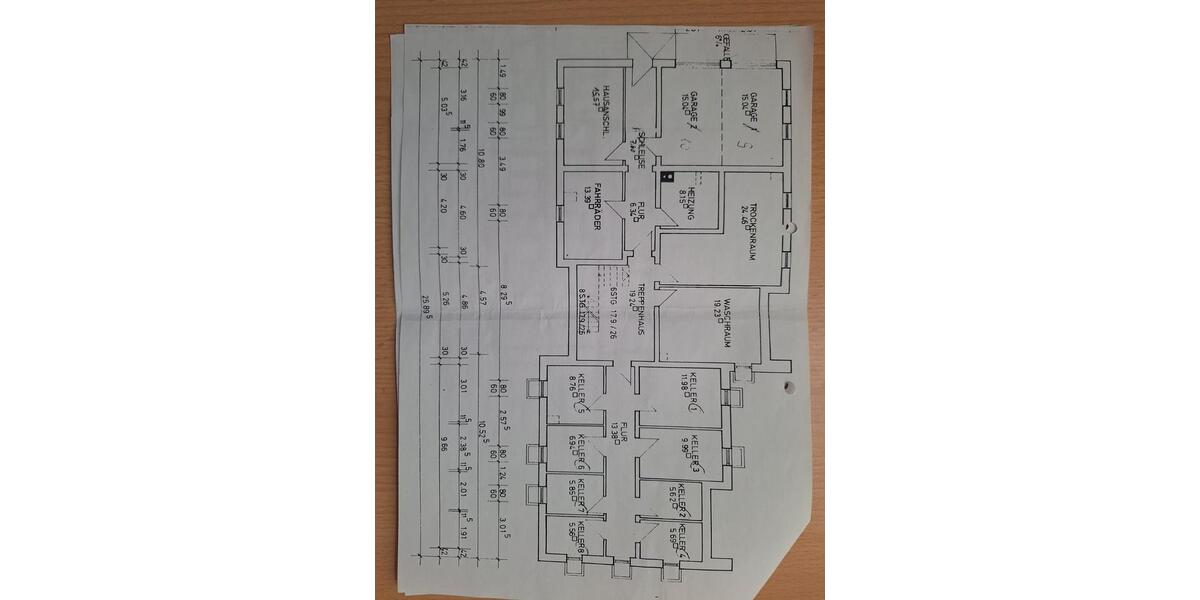 GEFÄLLE
6%
GARAGE 1 9
15.04
GARAGE 2 10
15.04
HAUSANSCHL.
15.57
SCHLEUSE
FLUR
6.34
HEIZUNG
8.15
TROCKENRAUM
24.46
FAHRRÄDER
13.39
TREPPENHAUS
19.24
6STG 17.9 / 26
8STG 17.9/26
WASCHRAUM
19.23
KELLER 1
11.98
KELLER 3
9.99
KELLER 2
5.62
KELLER 4
5.69
FLUR
13.38
KELLER 5
8.76
KELLER 6
6.94
KELLER 7
5.85
KELLER 8
5.56
1.49 80 99 80 3.49 80 8.29⁵ 80 2.57⁵ 80 1.24 80 3.01⁵
60 60 60 60 60 60
10.80 4.57 10.52⁵
42 3.16 11⁵ 1.76 30 4.60 30 4.86 30 3.01 11⁵ 2.38⁵ 11⁵ 2.01 11⁵ 1.91 42
42 5.03⁵ 30 4.20 30 5.26 30 9.66 42
25.89⁵